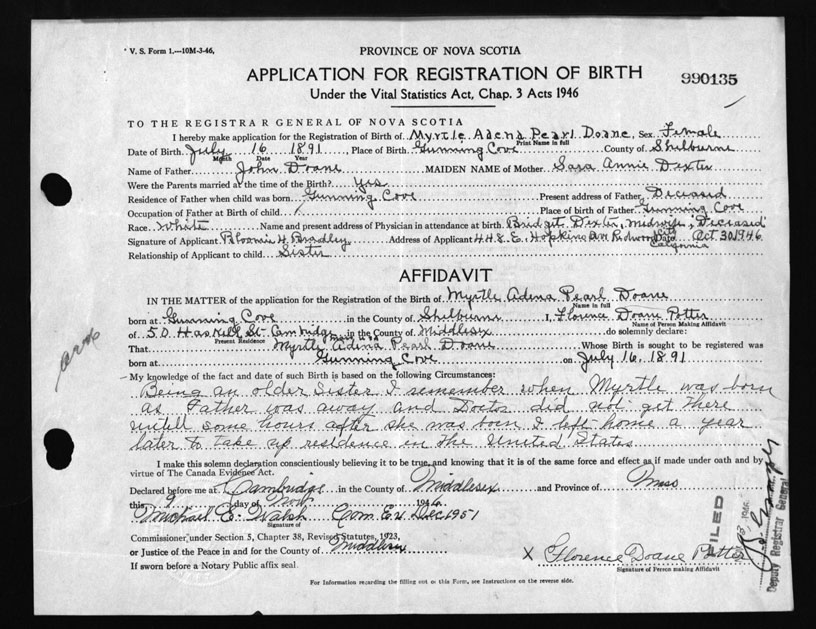 V. S. Form 1.—10M-3-46.
PROVINCE OF NOVA SCOTIA
APPLICATION FOR REGISTRATION OF BIRTH
990135
Under the Vital Statistics Act, Chap. 3 Acts 1946
TO THE REGISTRAR GENERAL OF NOVA SCOTIA
I hereby make application for the Registration of Birth of Myrtle Adena Pearl Doane, Sex Female
Print Name in full
Date of Birth July 16 1891, Place of Birth Gunning Cove County of Shelburne
Month Date Year
Name of Father John Doane MAIDEN NAME of Mother Sara Annie Dexter
Were the Parents married at the time of the Birth? Yes
Residence of Father when child was born Gunning Cove Present address of Father Deceased
Occupation of Father at Birth of child Place of birth of Father Gunning Cove
Race White Name and present address of Physician in attendance at birth Bridget Dexter, Midwife, "Deceased"
Signature of Applicant Bloomie H Bradley Address of Applicant 448 E. Hopkins Ave Redwood City Date Oct 30 1946
California
Relationship of Applicant to child Sister
AFFIDAVIT
IN THE MATTER of the application for the Registration of the Birth of Myrtle Adina Pearl Doane
Name in full
born at Gunning Cove in the County of Shelburne I, Florence Doane Potter
Name of Person Making Affidavit
of 50 Haskell St. Cambridge in the County of Middlesex do solemnly declare:
Present Residence
That Myrtle Adina Pearl Doane Whose Birth is sought to be registered was
born at Gunning Cove on July 16, 1891
My knowledge of the fact and date of such Birth is based on the following Circumstances:
Being an older Sister I remember when Myrtle was born
as Father was away and Doctor did not get there
untill some hours after she was born I left home a year
later to take up residence in the United States
I make this solemn declaration conscientiously believing it to be true, and knowing that it is of the same force and effect as if made under oath and by
virtue of The Canada Evidence Act.
Declared before me at Cambridge in the County of Middlesex and Province of Mass
this day of Nov 1946
Michael E. Walsh Com. Ex Dec 1951
Signature of
Commissioner, under Section 5, Chapter 38, Revised Statutes, 1923,
or Justice of the Peace in and for the County of Middlesex
If sworn before a Notary Public affix seal.
X Florence Doane Potter
Signature of Person making Affidavit
For Information regarding the filling out of this Form, see Instructions on the reverse side.
FILED
Deputy Registrar General